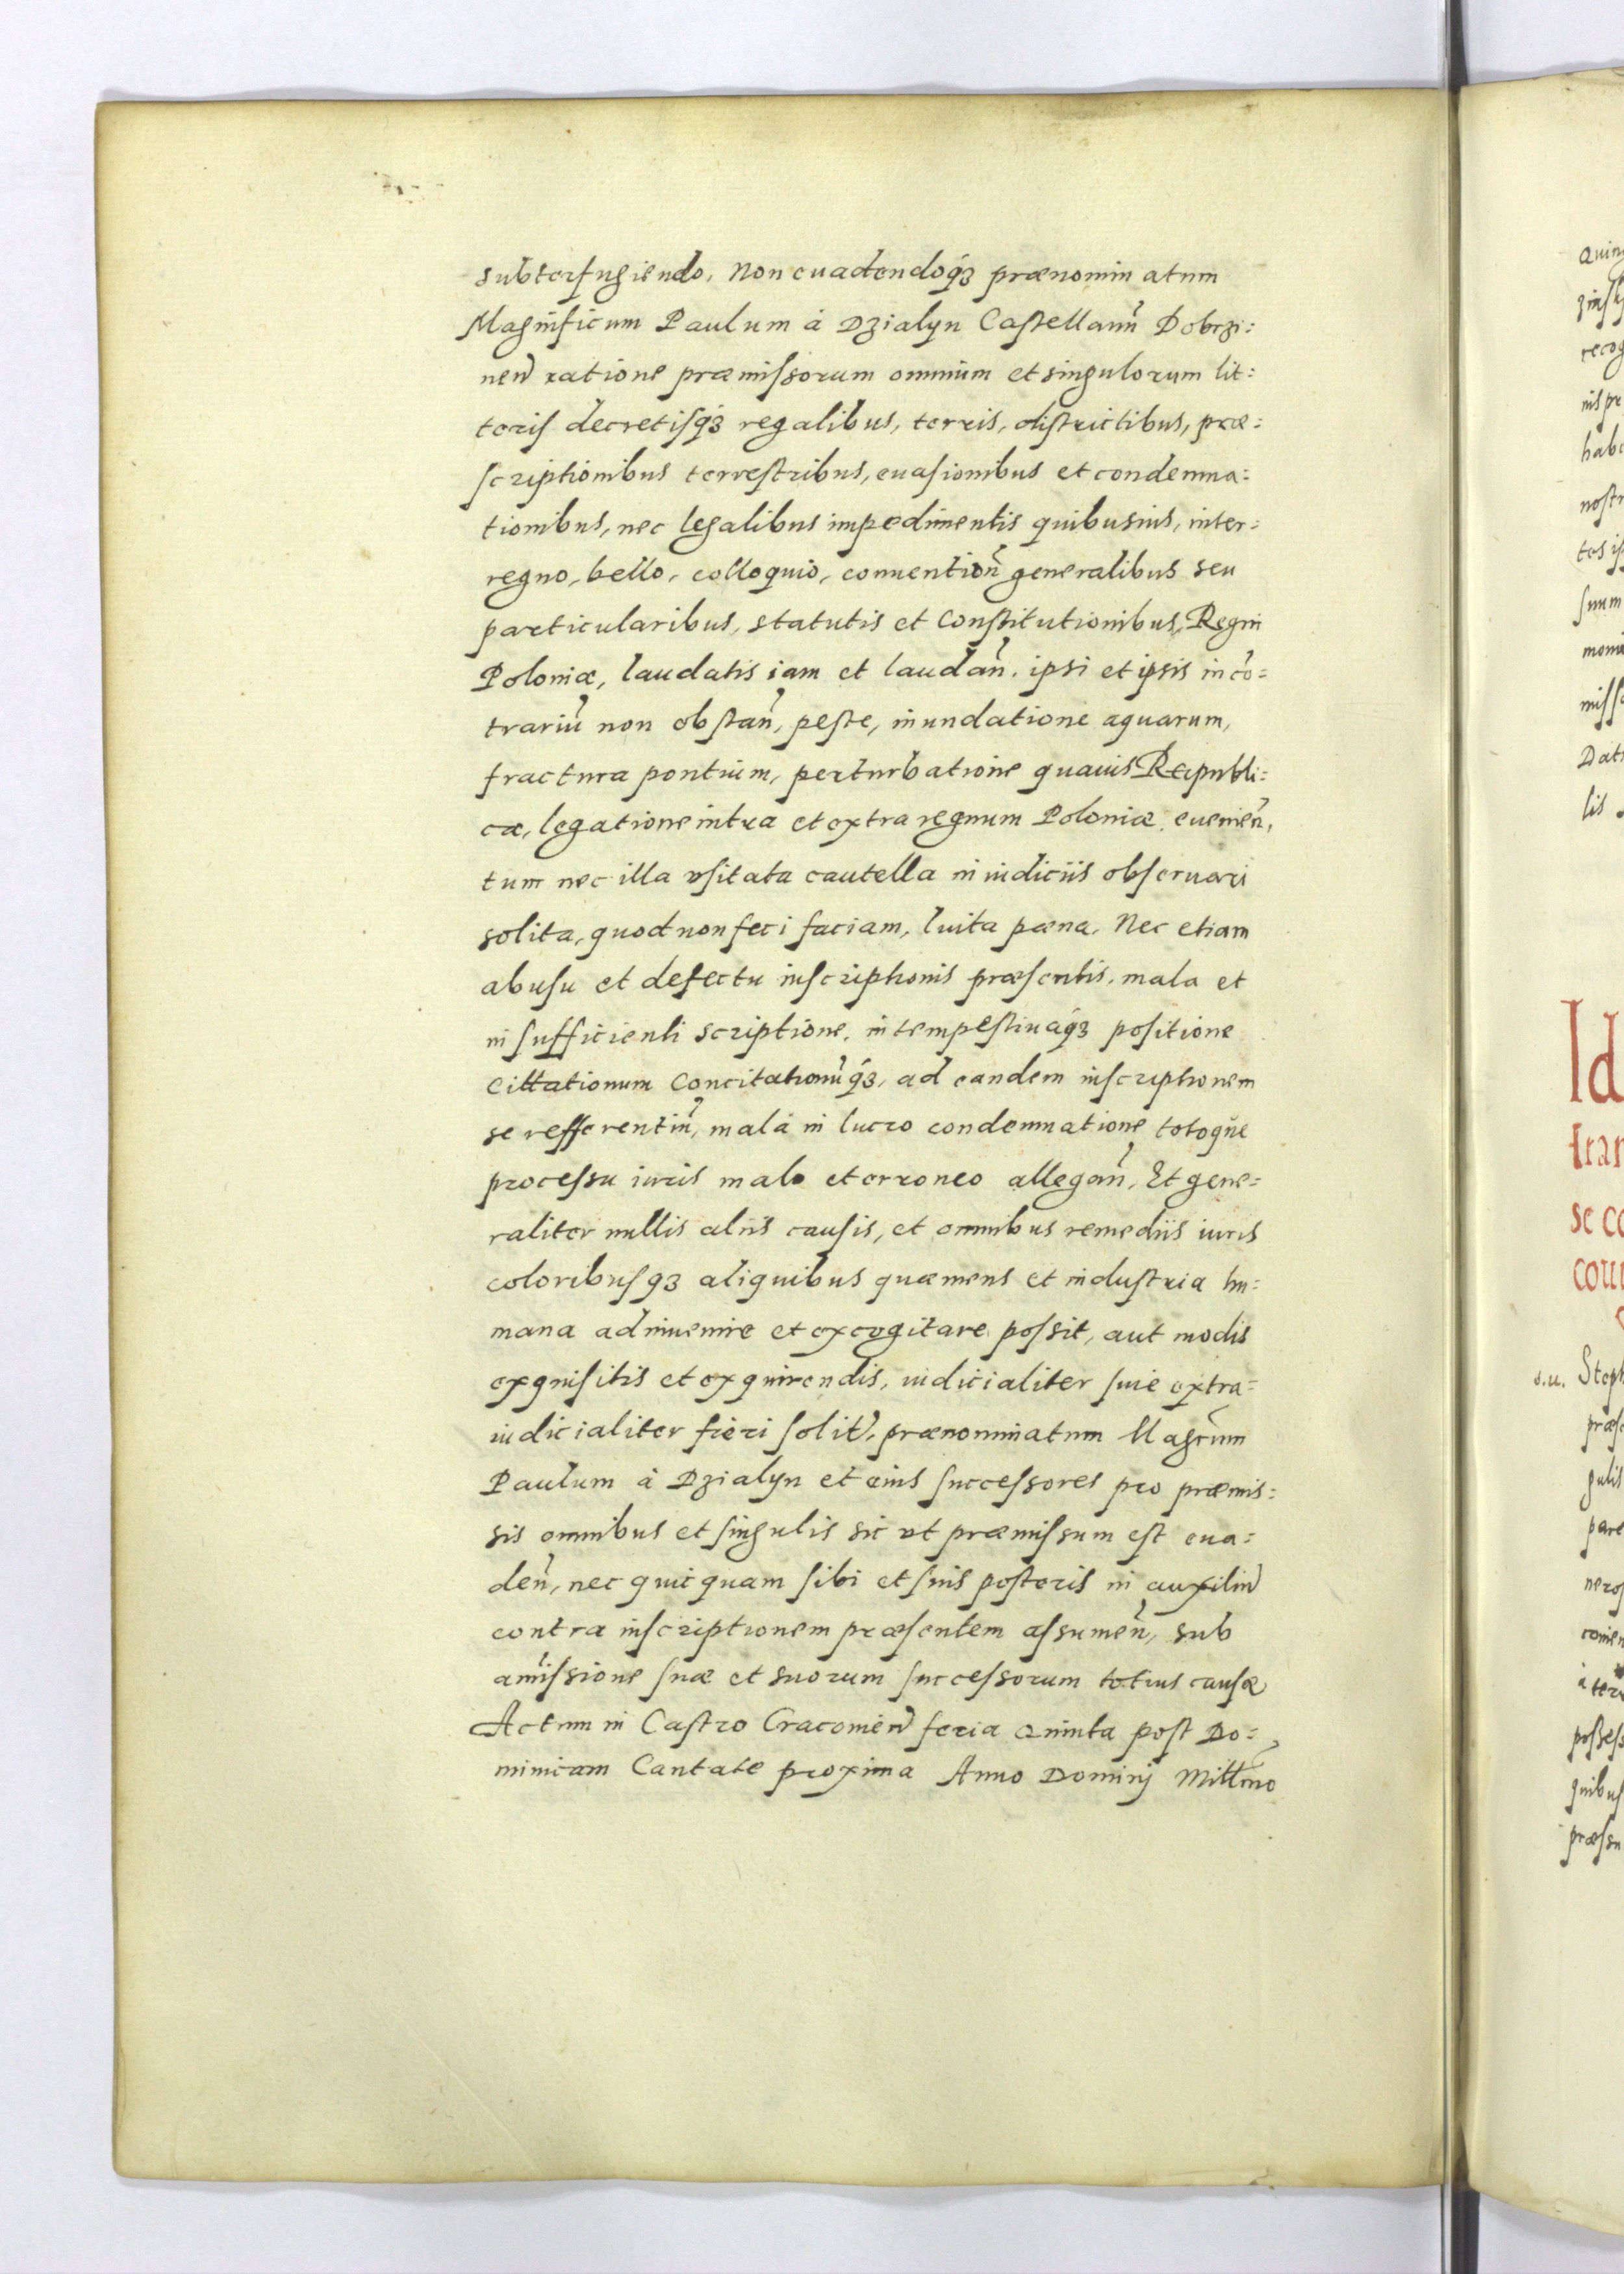 subterfugiendo, Non euadendoqȝ prænominatum
Magnificum Paulum à Dzialyn Castellanũ Dobrzi:
neñ ratione præmissorum omnium et singulorum lit:
teris decretisqȝ regalibus, terris, districtibus, præ:
scriptionibus terrestribus, euasionibus et condemna:
tionibus, nec legalibus impedimentis quibusuis, inter:
regno, bello, colloquio, conuentioñ generalibus seu
particularibus, statutis et Constitutionibus, Regni
Poloniæ, laudatis iam et laudañ. ipsi et ipsis in cõ:
trariũ non obstañ, peste, inundatione aquarum,
fractura pontium, perturbatione quauis Reipubli:
cæ, legatione intra et extra regnum Poloniæ eueneñ,
tum nec illa vsitata cautella in iudiciis obseruari
solita, quod non feci faciam, luita pœna. Nec etiam
abusu et defectu inscriptionis præsentis, mala et
insufficienti scriptione, intempestiuaqȝ positione
Cittationum Concitationũqȝ, ad eandem inscriptionem
se refferentiũ, mala in lucro condemnatione totoque
processu iuris malo et erroneo allegañ, Et gene=
raliter nullis aliis causis, et omnibus remediis iuris
coloribusqȝ aliquibus quæ mens et industria hu:
mana adinuenire et excogitare possit, aut modis
exquisitis et exquirendis, iudicialiter siue extra=
iudicialiter fieri solit̃, prænominatum Magcum
Paulum à Dzialyn et eius successores pro præmis:
sis omnibus et singulis sic vt præmissum est eua:
deñ, nec quicquam sibi et suis posteris in auxiliũ
contra inscriptionem præsentem assumeñ, sub
amissione suæ et suorum successorum totius causæ
Actum in Castro Cracouieñ feria Quinta post Do:
minicam Cantate proxima Anno Dominj Millmo